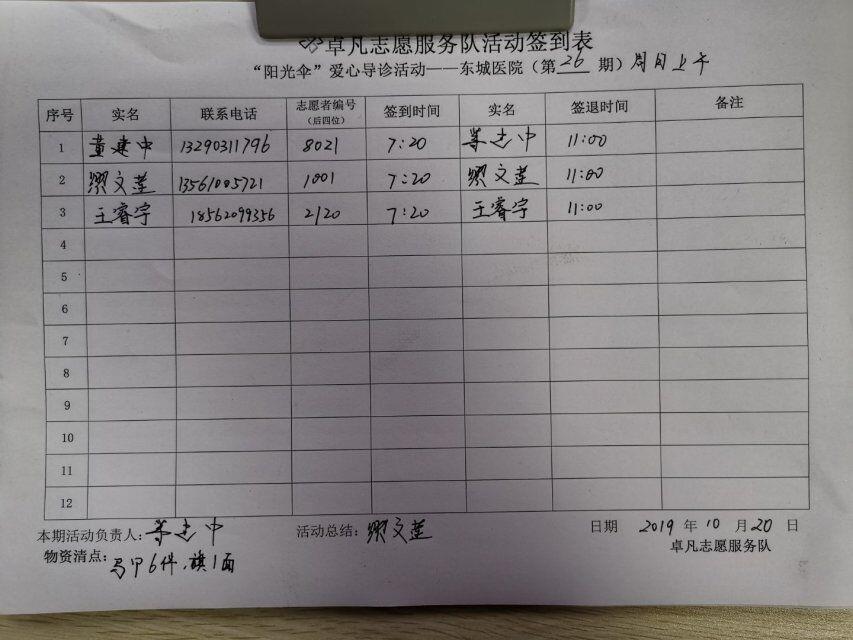 卓凡志愿服务队活动签到表
“阳光伞”爱心导诊活动——东城医院（第 26 期）周日上午
序号 实名 联系电话 志愿者编号（后四位） 签到时间 实名 签退时间 备注
1 董建中 13290311796 8021 7:20 董建中 11:00
2 文莲 13561005721 1001 7:20 文莲 11:00
3 王睿宇 18562099356 2120 7:20 王睿宇 11:00
4
5
6
7
8
9
10
11
12
本期活动负责人：董建中 活动总结：文莲 日期 2019 年 10 月 20 日
物资清点：马甲6件，旗1面 卓凡志愿服务队